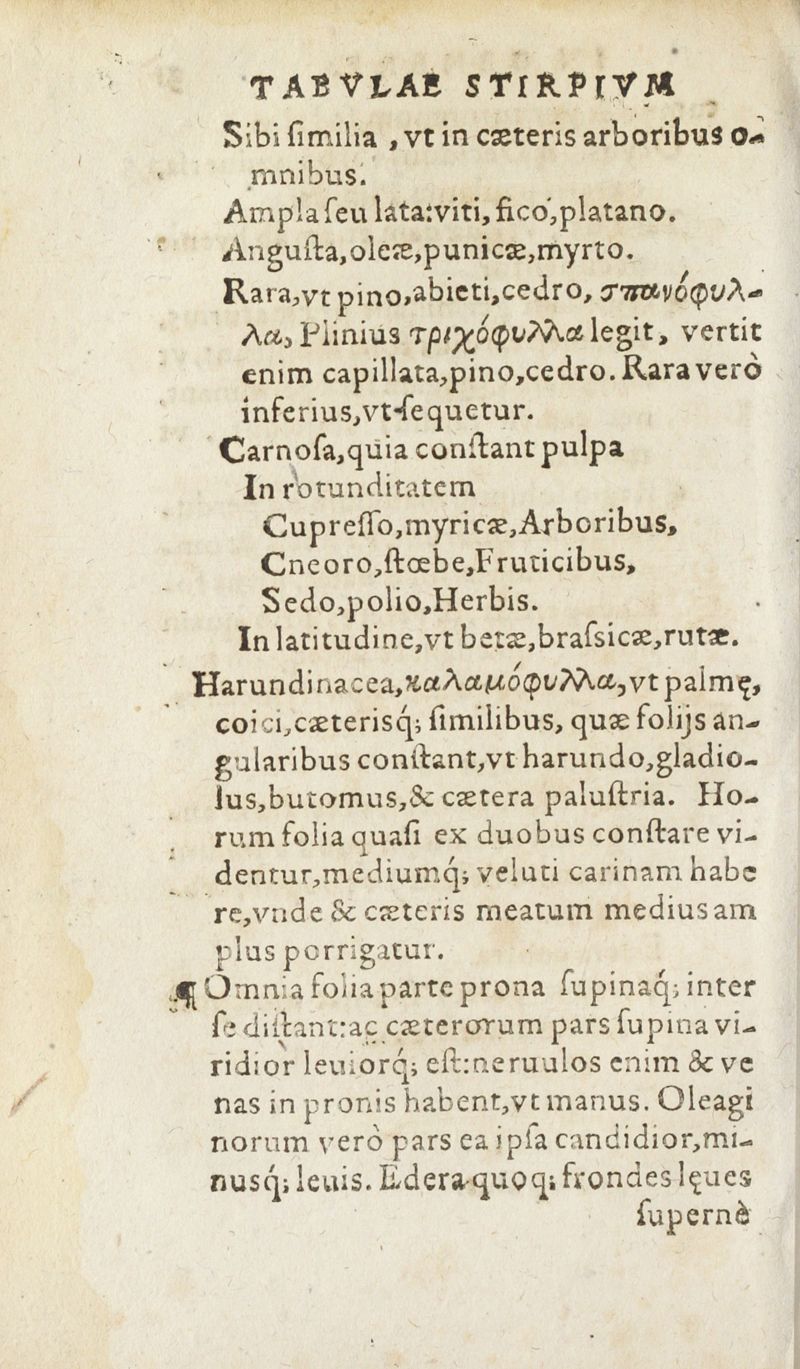 TABVLAE STIRPIVM
Sibi ſimilia , vt in cæteris arboribus o-
mnibus.
Ampla ſeu lata:viti, fico,platano.
Anguſta,oleæ,punicæ,myrto.
Rara,vt pino,abieti,cedro, σπανόφυλ-
λα, Plinius τριχόφυλλα legit, vertit
enim capillata,pino,cedro. Rara verò
inferius,vt ſequetur.
Carnoſa,quia conſtant pulpa
In rotunditatem
Cupreſſo,myricæ,Arboribus,
Cneoro,ſtœbe,Fruticibus,
Sedo,polio,Herbis.
In latitudine,vt betæ,braſsicæ,rutæ.
Harundinacea,καλαμόφυλλα,vt palmę,
coici,cæterisq; ſimilibus, quæ folijs an-
gularibus conſtant,vt harundo,gladio-
lus,butomus,& cætera paluſtria. Ho-
rum folia quaſi ex duobus conſtare vi-
dentur,mediumq; veluti carinam habe
re,vnde & cæteris meatum medius am
plus porrigatur.
¶ Omnia folia parte prona ſupinaq; inter
ſe diſtant:ac cæterorum pars ſupina vi-
ridior leuiorq; eſt:neruulos enim & ve
nas in pronis habent,vt manus. Oleagi
norum verò pars ea ipſa candidior,mi-
nusq; leuis. Edera quoq; frondes lęues
ſupernè